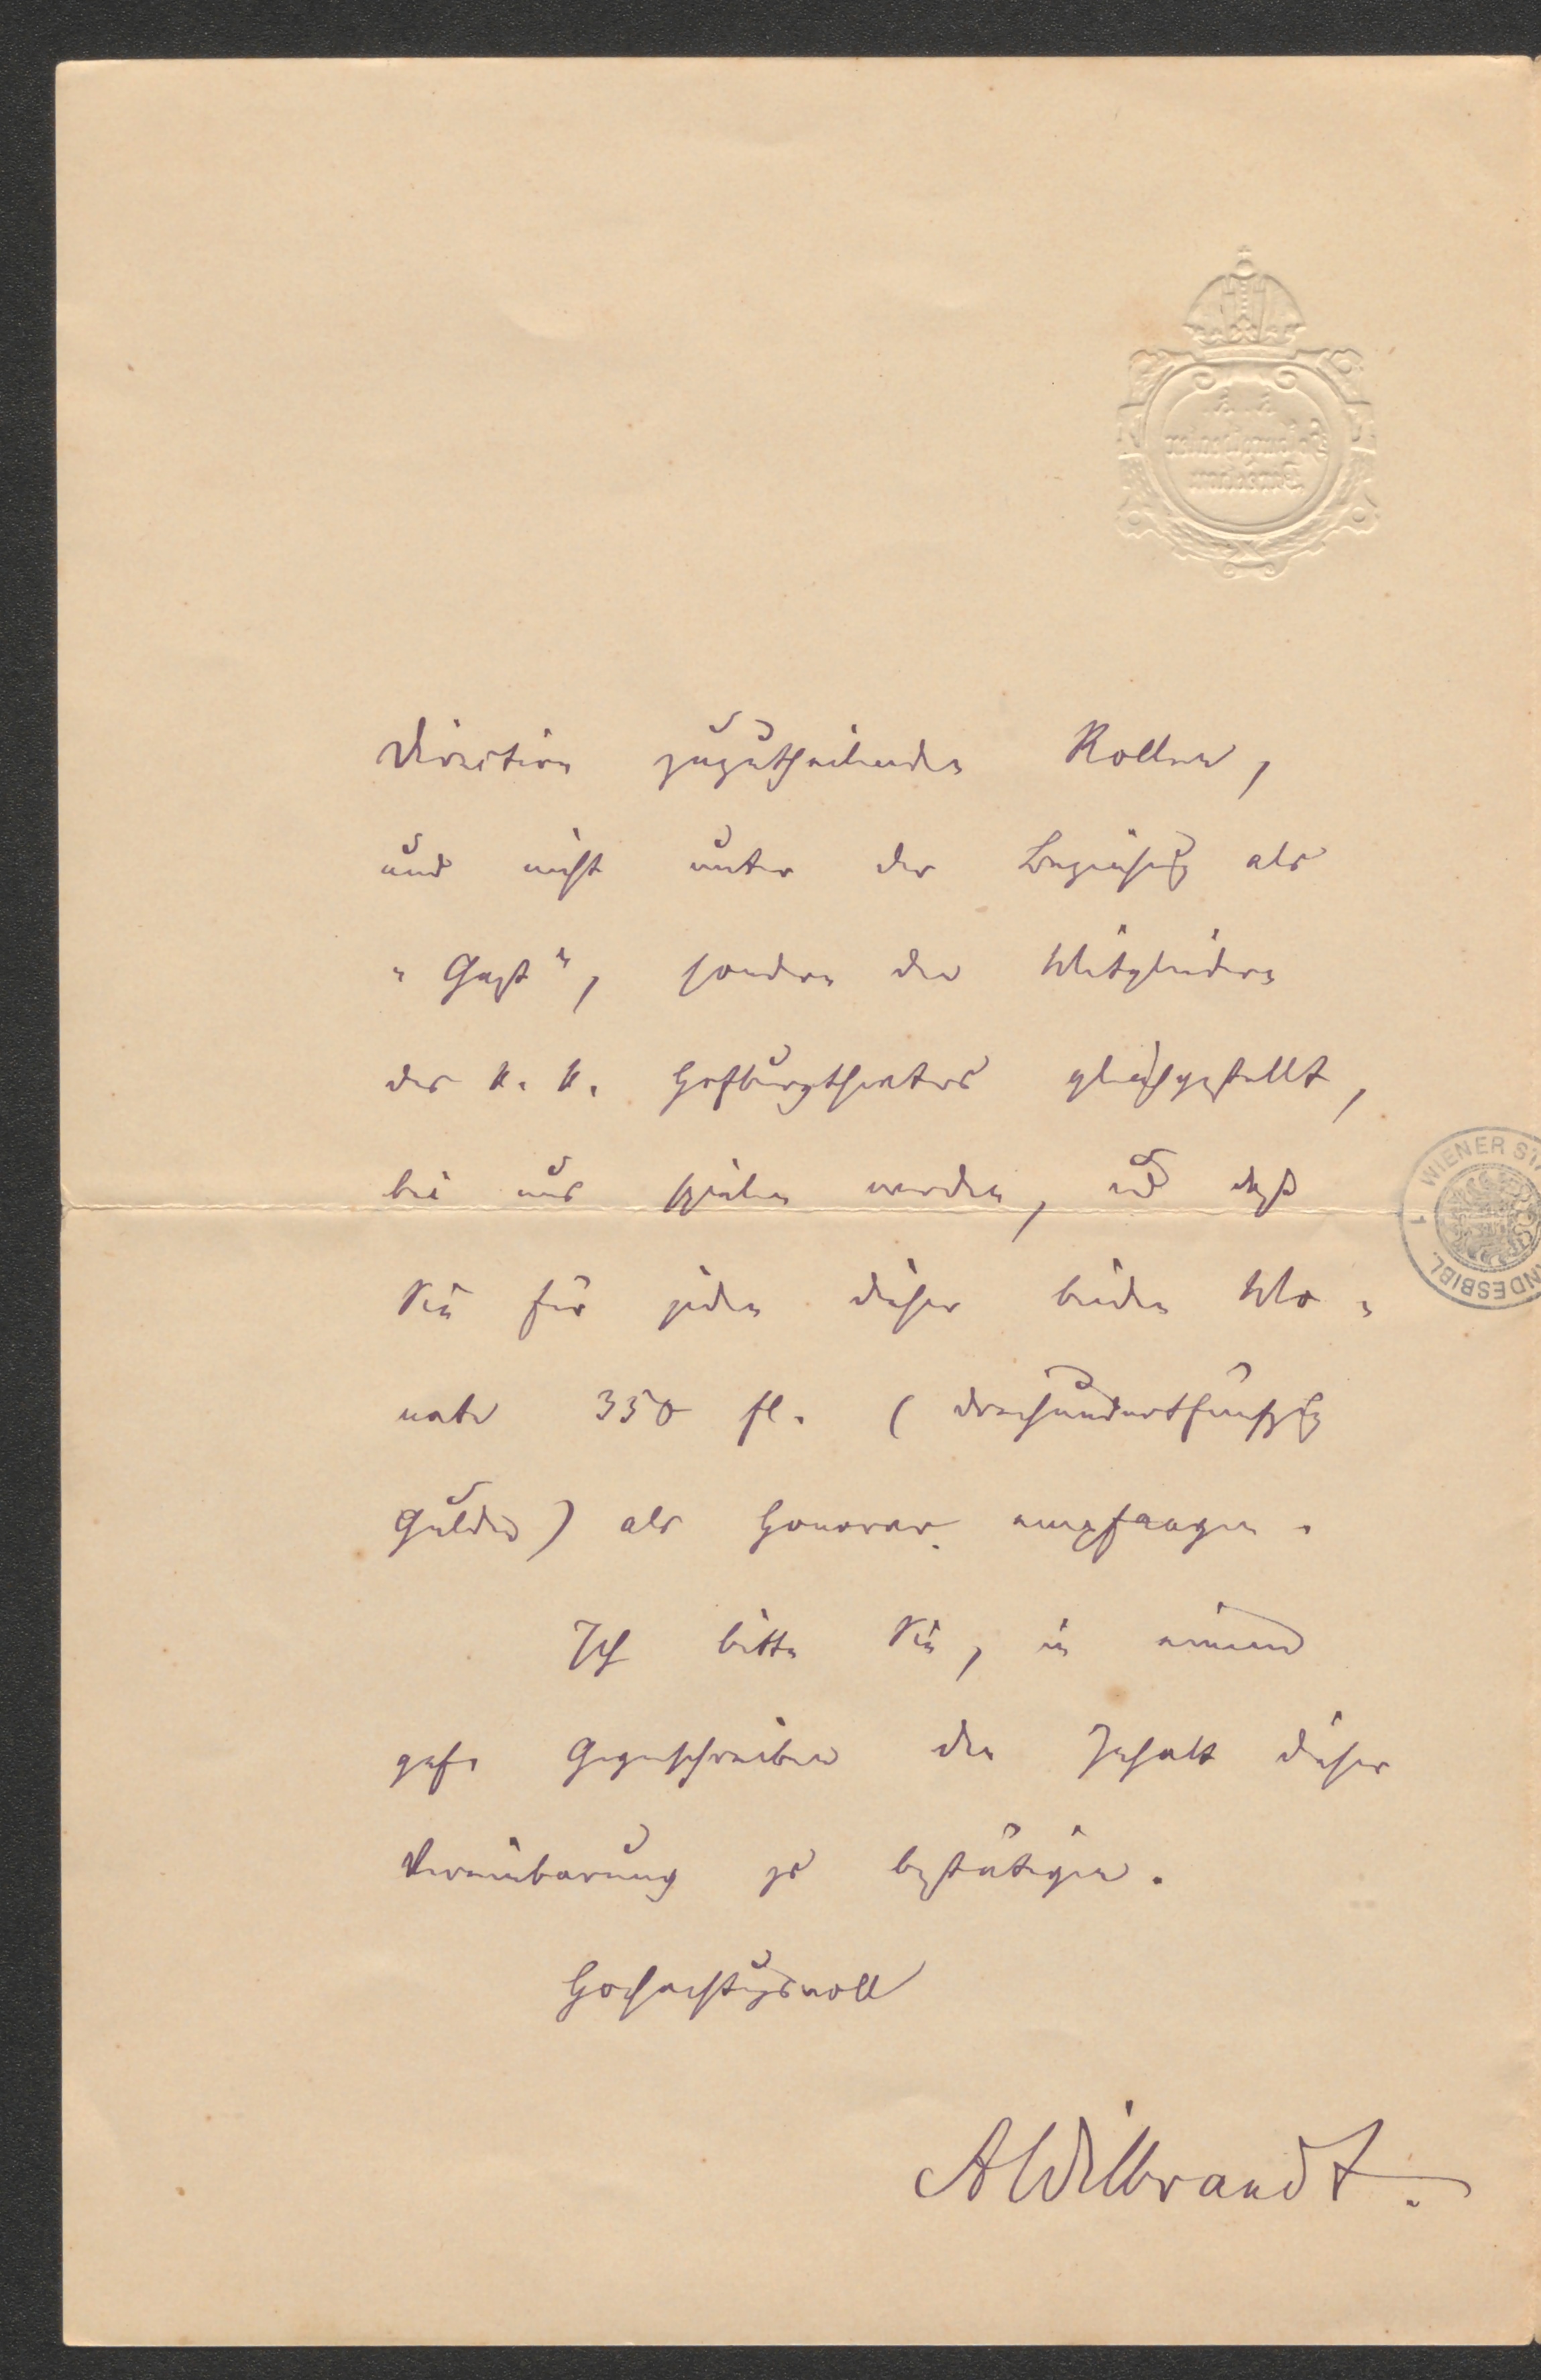 K. K.
Hofburgtheater
Direction
Direction zuzutheilenden Rollen,
und nicht unter der Bezeichnung als
„Gast“, sondern den Mitgliedern
des K. K. Hofburgtheaters gleichgestellt,
bei uns spielen werden, und daß
Sie für jeden dieser beiden Mo-
nate 350 fl. (dreihundertfünfzig
Gulden) als Honorar empfangen.
Ich bitte Sie, in einem
gef. Gegenschreiben den Inhalt dieser
Vereinbarung zu bestätigen.
Hochachtungsvoll
AWilbrandt.
WIENER STA
ANDESBIBL.